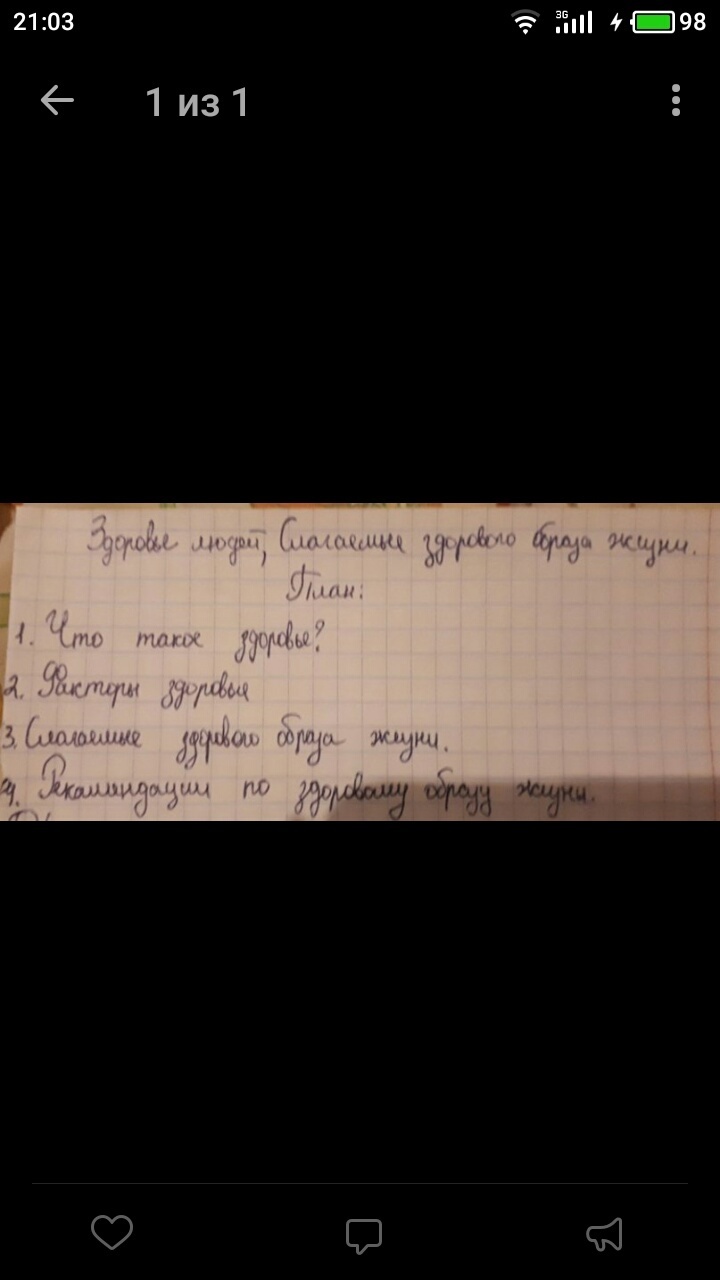 21:03
3G
98
1 из 1
Здоровье людей, Слагаемые здорового образа жизни.
План:
1. Что такое здоровье?
2. Факторы здоровья
3. Слагаемые здорового образа жизни.
4. Рекомендации по здоровому образу жизни.